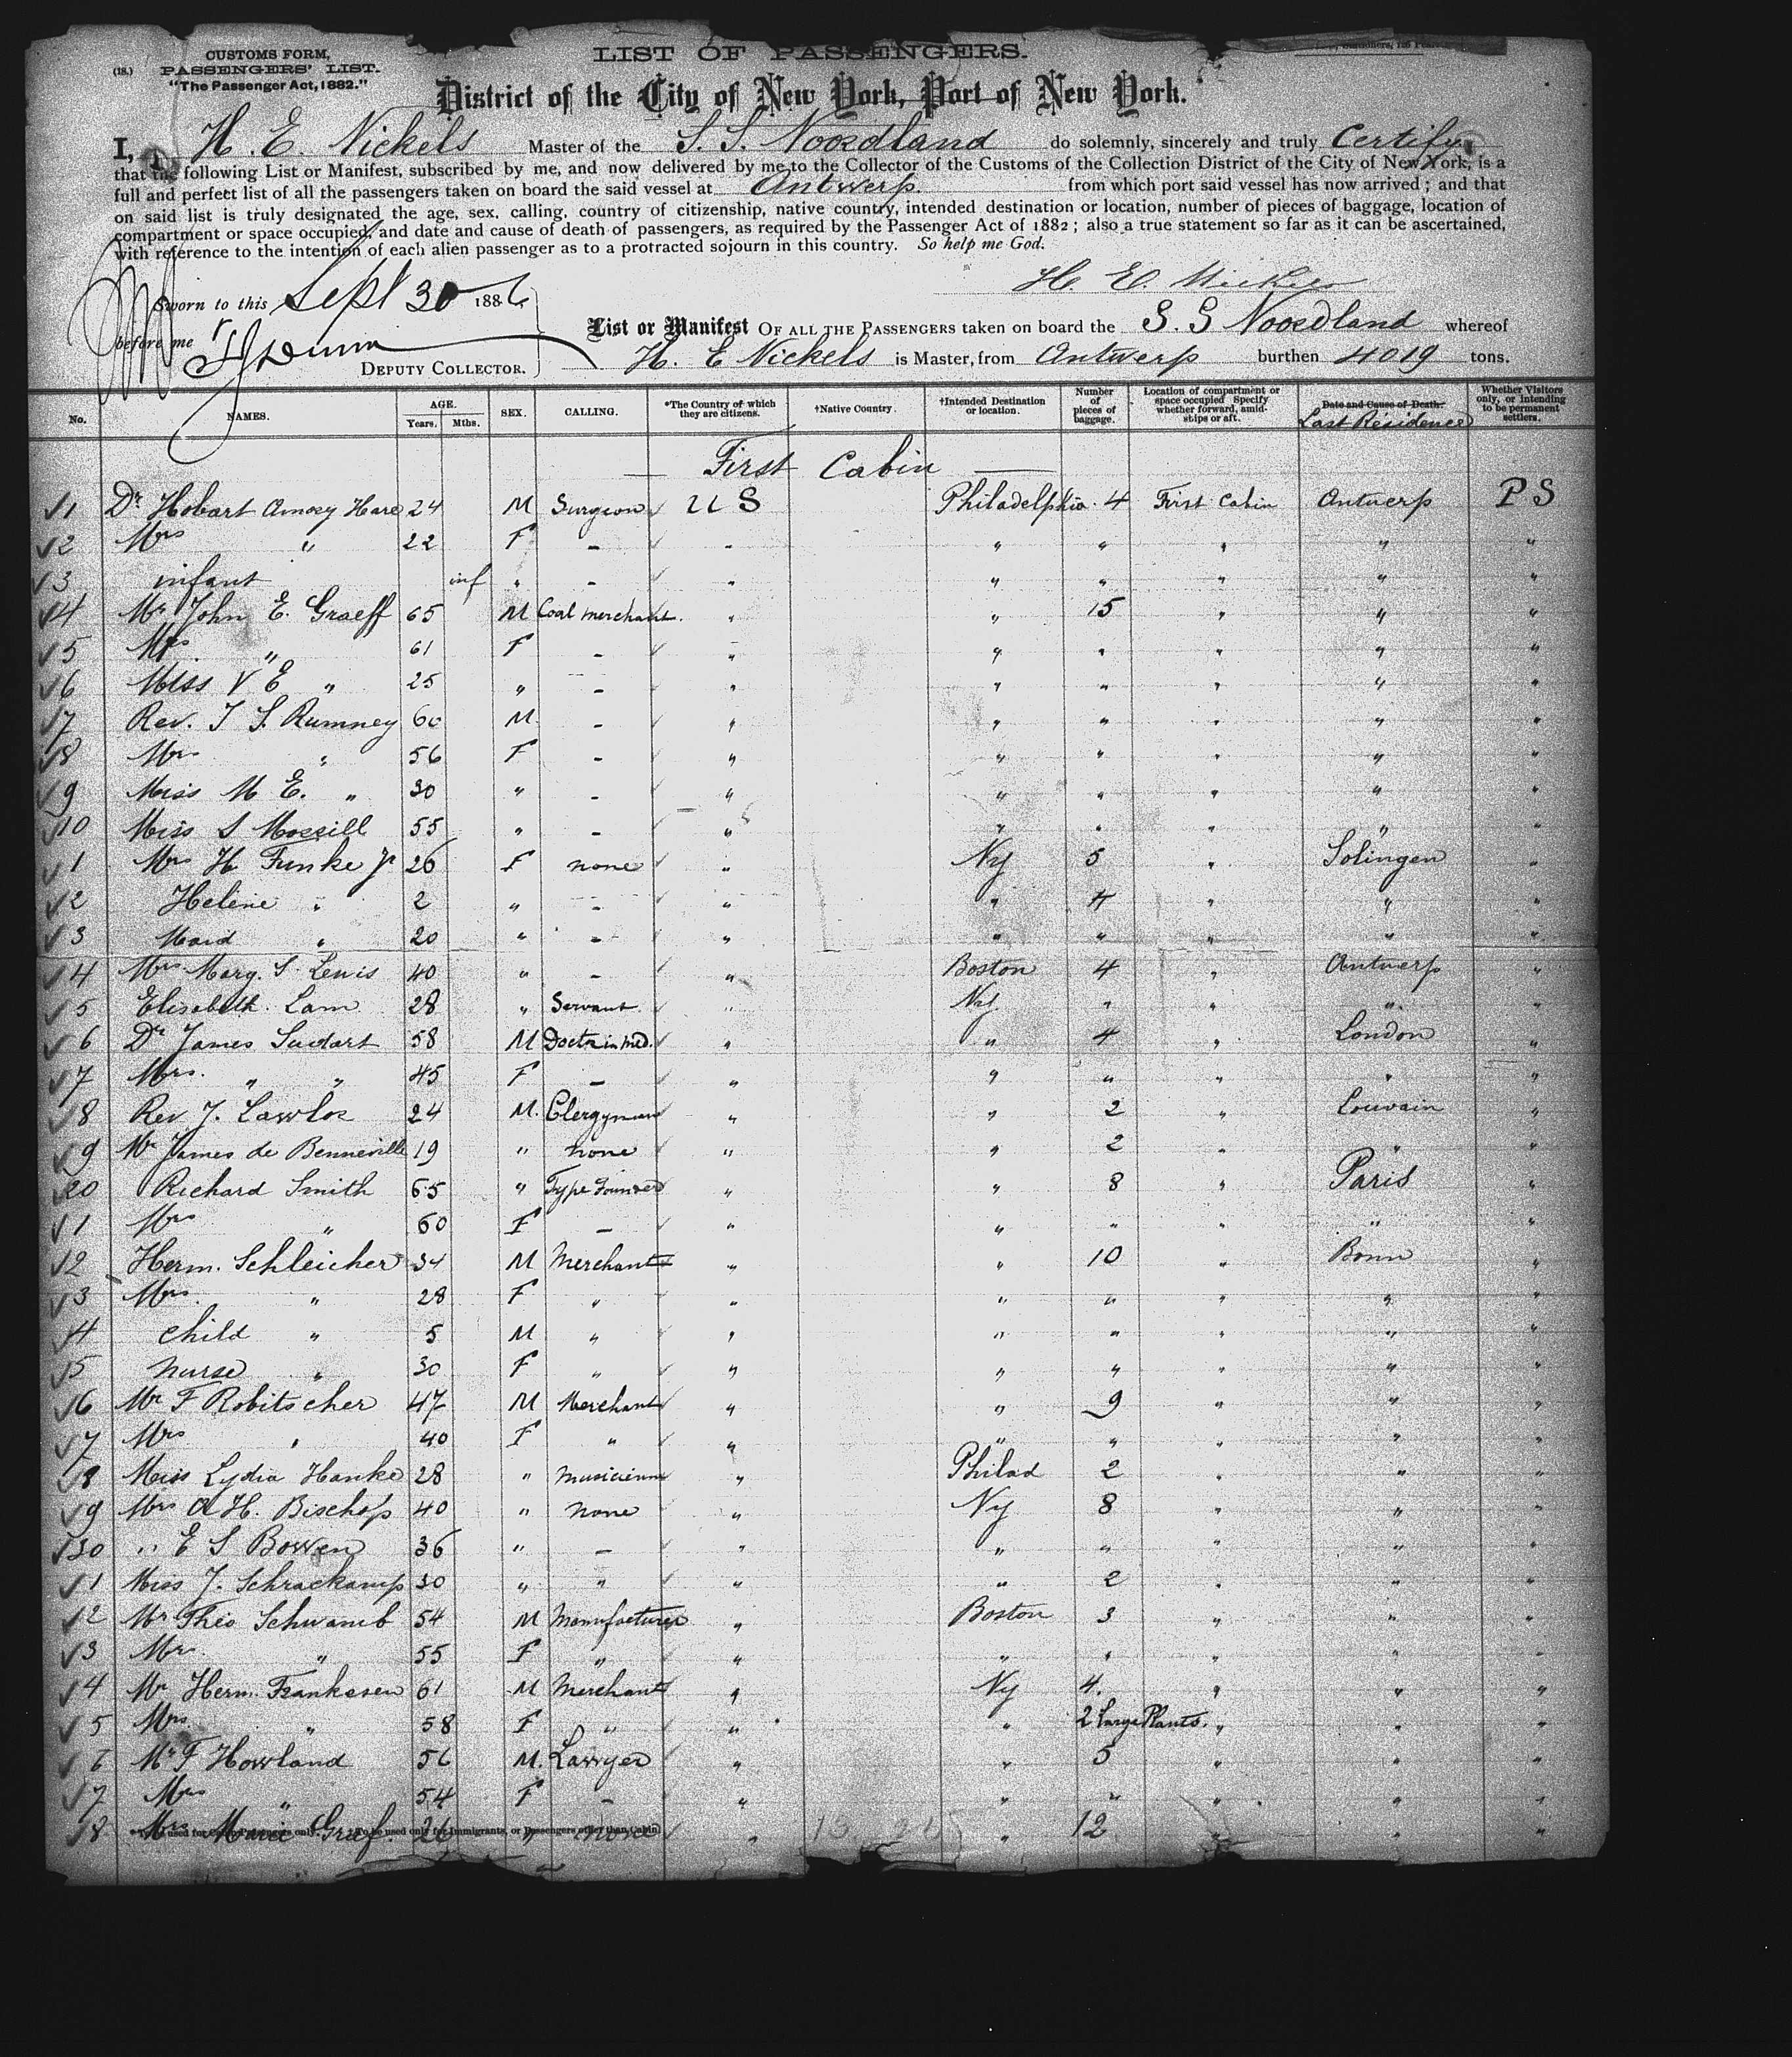 CUSTOMS FORM,
(18.) PASSENGERS' LIST.
"The Passenger Act, 1882."
LIST OF PASSENGERS.
District of the City of New York, Port of New York.
I, H. E. Nickels Master of the S. S. Noordland do solemnly, sincerely and truly Certify
that the following List or Manifest, subscribed by me, and now delivered by me to the Collector of the Customs of the Collection District of the City of New York, is a
full and perfect list of all the passengers taken on board the said vessel at Antwerp from which port said vessel has now arrived; and that
on said list is truly designated the age, sex, calling, country of citizenship, native country, intended destination or location, number of pieces of baggage, location of
compartment or space occupied, and date and cause of death of passengers, as required by the Passenger Act of 1882; also a true statement so far as it can be ascertained,
with reference to the intention of each alien passenger as to a protracted sojourn in this country. So help me God.
H. E. Nickels
Sworn to this Sept 30 1886
before me
DEPUTY COLLECTOR.
List or Manifest OF ALL THE PASSENGERS taken on board the S. S Noordland whereof
H. E Nickels is Master, from Antwerp burthen 4019 tons.
No. NAMES. AGE. Years. Mths. SEX. CALLING. *The Country of which they are citizens. †Native Country. †Intended Destination or location. Number of pieces of baggage. Location of compartment or space occupied Specify whether forward, amidships or aft. Date and Cause of Death. Last Residence Whether Visitors only, or intending to be permanent settlers.
First Cabin
1 Dr Hobart Amory Hare 24 M Surgeon U S Philadelphia. 4 First Cabin Antwerp P S
2 Mrs " 22 F - " " " " " "
3 infant inf " - " " " " " "
4 Mr John E. Graeff 65 M Coal merchant. " " 15 " " "
5 Mrs. " 61 F - " " " " " "
6 Miss V E " 25 " - " " " " " "
7 Rev. T S. Rumney 60 M. - " " " " " "
8 Mrs " 56 F - " " " " " "
9 Miss M E. " 30 " - " " " " " "
10 Miss S Morrill 55 " - " " " " " "
1 Mrs H Funke Jr 26 F none " Ny 5 " Solingen "
2 Helene " 2 " - " " 4 " " "
3 Maid " 20 " - " " " " " "
4 Mrs Marg. S. Lewis 40 " - " Boston 4 " Antwerp "
5 Elisabeth. Lam 28 " Servant " Ny. " " " "
6 Dr James 58 M Doctor in Med. " " 4 " London "
7 Mrs. " " 45 F - " " " " " "
8 Rev J. Lawlor 24 M. Clergyman " " 2 " Louvain "
9 Mr James de Benneville 19 " none " " 2 " " "
20 Richard Smith 65 " Type Founder " " 8 " Paris "
1 Mrs " 60 F - " " " " " "
2 Herm. Schleicher 34 M Merchant " " 10 " Bonn "
3 Mrs. " 28 F " " " " " " "
4 child " 5 M " " " " " " "
5 nurse " 30 F " " " " " " "
6 Mr F Robitscher 47 M Merchant " " 9 " " "
7 Mrs " 40 F " " " " " " "
8 Miss Lydia Hanke 28 " musicienne " Philad 2 " " "
9 Mrs A H. Bischop 40 " none " Ny 8 " " "
30 " E S Bowen 36 " - " " " " " "
1 Miss J. Schrackamp 30 " " " " 2 " " "
2 Mr Theo Schwamb 54 M Manufacturer " Boston 3 " " "
3 Mrs. " 55 F " " " " " " "
4 Mr Herm. 61 M Merchant " Ny 4. " " "
5 Mrs " 58 F " " " 2 Large Plants. " " "
6 Mr F Howland 56 M. Lawyer " " 5 " " "
7 Mrs " 54 F - " " " " " "
8 Mrs Marie Graef. 26 " none " " 12 " " "
used for Cabin Passengers only. † To be used only for Immigrants, or Passengers other than Cabin.